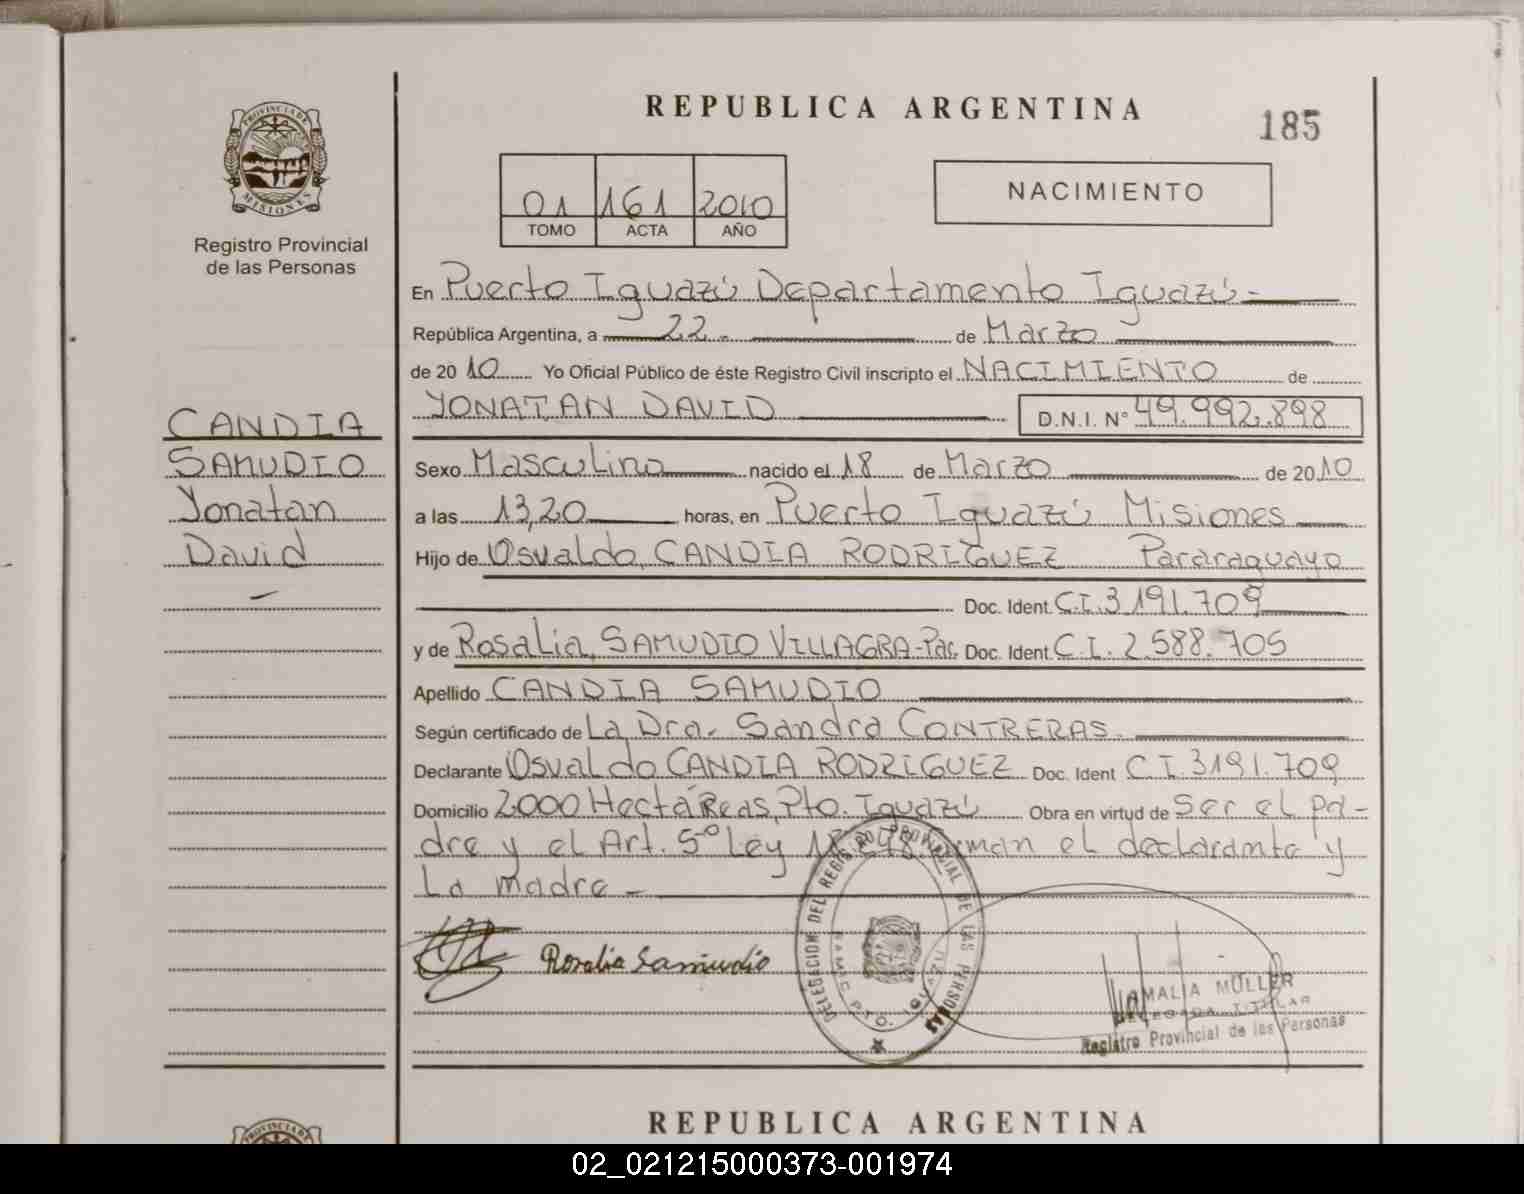 REPUBLICA ARGENTINA
185
PROVINCIA DE
MISIONES
Registro Provincial
de las Personas
01 161 2010
TOMO ACTA AÑO
NACIMIENTO
En Puerto Iguazú Departamento Iguazú-
República Argentina, a 22 de Marzo
de 2010 Yo Oficial Público de éste Registro Civil inscripto el NACIMIENTO de
YONATAN DAVID D.N.I. N° 49.992.898
CANDIA
SAMUDIO
Yonatan
David
Sexo Masculino nacido el 18 de Marzo de 2010
a las 13,20 horas, en Puerto Iguazú Misiones
Hijo de Osvaldo, CANDIA RODRIGUEZ Pararaguayo
Doc. Ident C.I. 3191.709
y de Rosalia, SAMUDIO VILLAGRA-Par. Doc. Ident C.I. 2.588.705
Apellido CANDIA SAMUDIO
Según certificado de La Dra. Sandra CONTRERAS.
Declarante Osvaldo CANDIA RODRIGUEZ Doc. Ident C.I. 3191.709
Domicilio 2000 HectáReas, Pto. Iguazú Obra en virtud de Ser el pa-
dre y el Art. 5° Ley el declarante y
La madre-
Rosalia Samudio
DELEGACION DEL REGISTRO PROVINCIAL DE LAS PERSONAS
AMALIA MÜLLER
DELEGADA TITULAR
Registro Provincial de las Personas
REPUBLICA ARGENTINA
PROVINCIA DE
02_021215000373-001974